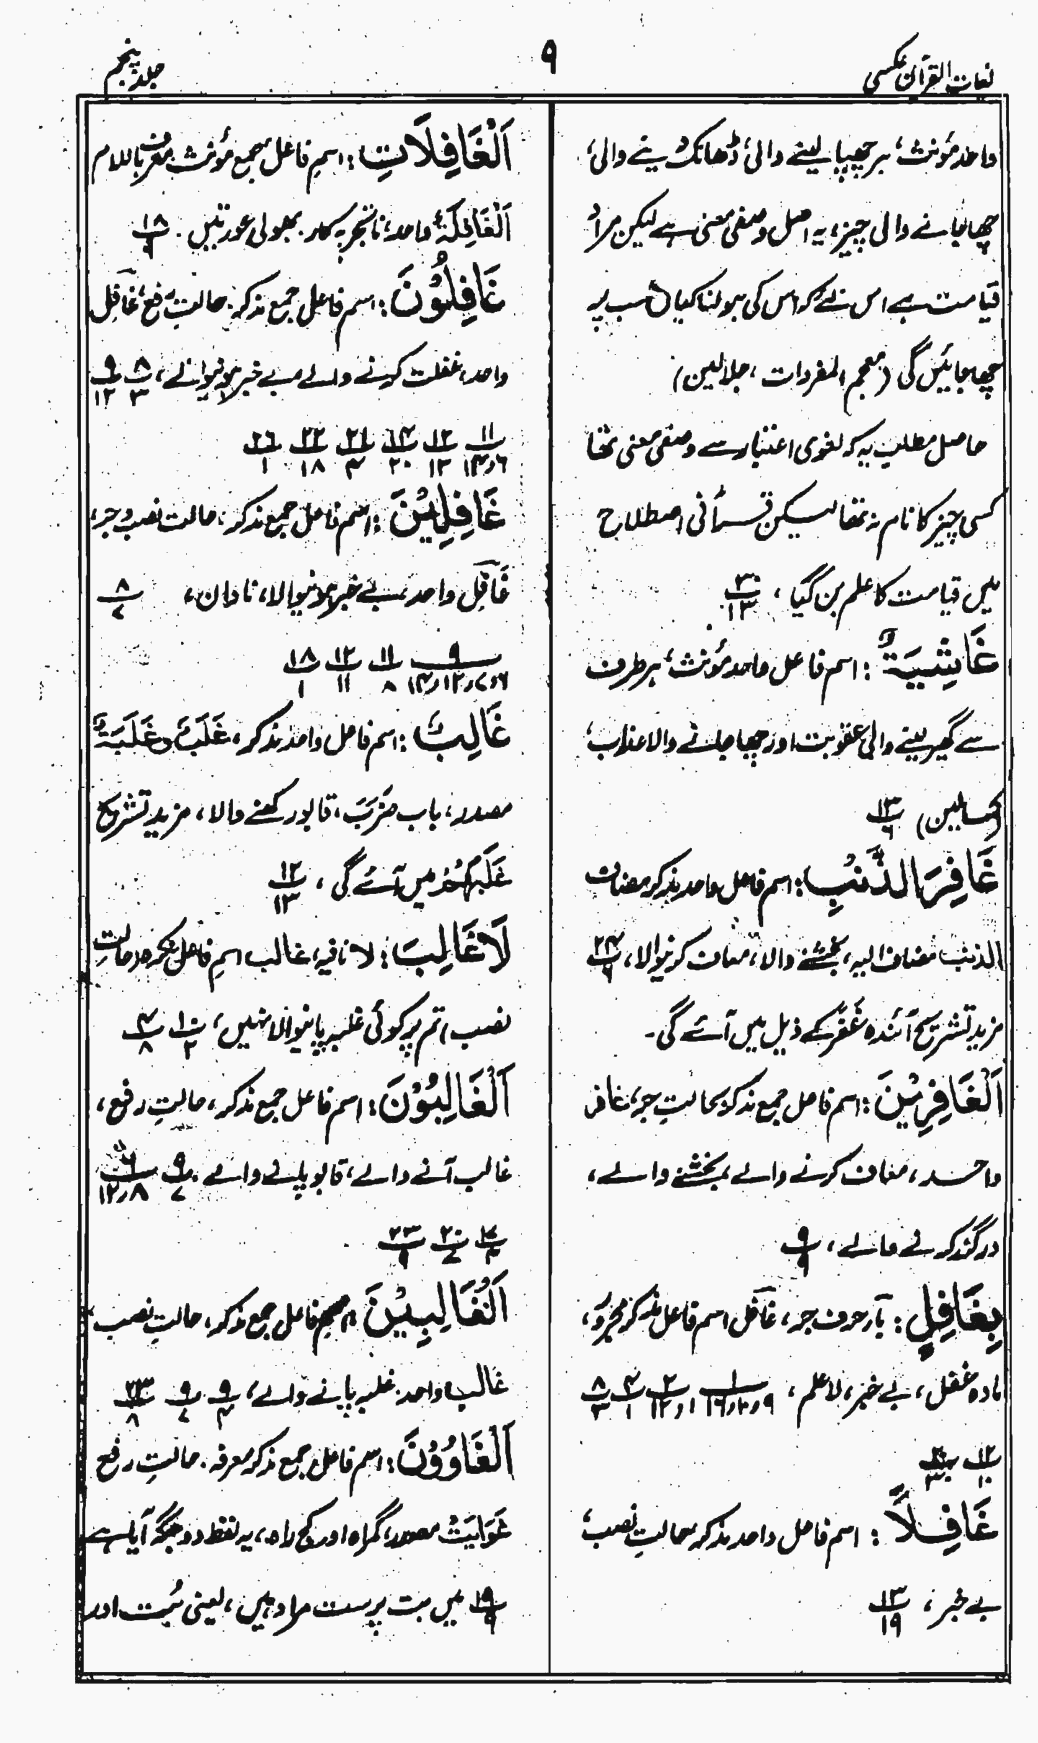 لغات القرآن عکسی
۹
جلد پنجم
واحد مؤنث، ہر چھپا لینے والی، ڈھانک دینے والی،
چھا جانے والی چیز، یہ اصل وصفی معنی ہے لیکن مراد
قیامت ہے اس لئے کہ اس کی ہولناکیاں سب پر
چھا جائیں گی (معجم المفردات، جلالین)
حاصل مطلب یہ کہ لغوی اعتبار سے وصفی معنی تھا
کسی چیز کا نام نہ تھا لیکن قرآنی اصطلاح
میں قیامت کا علم بن گیا، ۳۰/۱۳
غَاشِیَةٌ: اسم فاعل واحد مؤنث، ہر طرف
سے گھیر لینے والی عقوبت اور چھا جانے والا عذاب،
۱۳/۶
غَافِرِ الذَّنْبِ: اسم فاعل واحد مذکر مضاف
الذنب مضاف الیہ، بخشنے والا، معاف کرنیوالا، ۲۴/۶
مزید تشریح آئندہ غَفَرَ کے ذیل میں آئے گی۔
اَلْغَافِرِیْنَ: اسم فاعل جمع مذکر بحالتِ جر، غافر
واحد، معاف کرنے والے، بخشنے والے،
درگذر کرنے والے، ۹/۹
بِغَافِلٍ: بآر حرف جر، غَافل اسم فاعل مذکر مجرور،
مادہ غفل، بے خبر، لا علم، ۱/۹و۱۰و۱۶ ۲/۱و۱۲ ۴/۱ ۸/۳
۱۲/۱۰ ۲۰/۳
غَافِلًا: اسم فاعل واحد مذکر، حالتِ نصب،
بے خبر، ۱۳/۱۹
اَلْغَافِلَاتِ: اسمِ فاعل جمع مؤنث معرف باللام
اَلْغَافِلَةُ واحد، ناتجربہ کار۔ بھولی عورتیں۔ ۱۸/۹
غَافِلُوْنَ: اسم فاعل جمع مذکر۔ حالتِ رفع، غَافِل
واحد، غفلت کرنے والے بے خبر ہونیوالے، ۸/۳ ۹/۱۲
۱۱/۶و۱۴ ۱۲/۱۲ ۱۴/۲۰ ۲۱/۴ ۲۲/۱۸ ۲۶/۱
غَافِلِیْنَ: اسم فاعل جمع مذکر، حالت نصب و جر،
غَافِل واحد، بے خبر ہونیوالا، نادان، ۸/۷
۹/۶و۷و۱۲و۱۴ ۱۱/۸ ۱۲/۱۱ ۱۸/۱
غَالِبٌ: اسم فاعل واحد مذکر، غَلَبَ و غَلَبَةٌ
مصدر، باب ضَرَبَ، قابو رکھنے والا، مزید تشریح
میں آئے گی، ۱۲/۱۳
لَا غَالِبَ: لا نافیہ، غالب اسمِ فاعل نکرہ حالتِ
نصب، تم پر کوئی غلبہ پانیوالا نہیں، ۱۰/۲ ۴/۸
اَلْغَالِبُوْنَ: اسم فاعل جمع مذکر، حالتِ رفع،
غالب آنے والے، قابو پانے والے۔ ۹/۷ ۶/۸و۱۲
۱۷/۴ ۲۰/۷ ۲۳/۹
اَلْغَالِبِیْنَ: اسم فاعل جمع مذکر، حالتِ نصب،
غالب واحد، غلبہ پانے والے، ۹/۴ ۹/۷ ۲۳/۸
اَلْغَاوُوْنَ: اسم فاعل جمع مذکر معرفہ۔ حالتِ رفع
غَوَایَتٌ مصدر، گمراہ اور کج راہ، یہ لفظ دو جگہ آیا ہے
۱۹/۹ میں بت پرست مراد ہیں، یعنی بُت اور